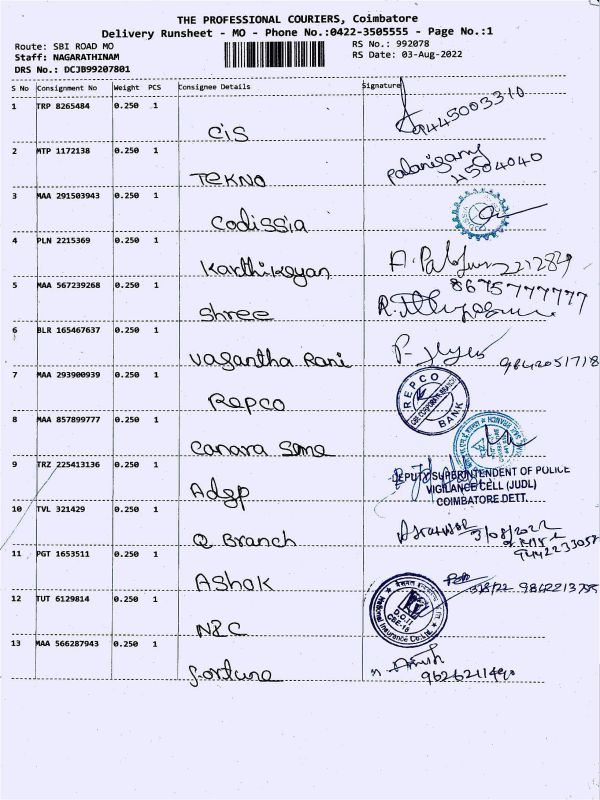 THE PROFESSIONAL COURIERS, Coimbatore
Delivery Runsheet - MO - Phone No.:0422-3505555 - Page No.:1
Route: SBI ROAD MO
RS No.: 992078
Staff: NAGARATHINAM
RS Date: 03-Aug-2022
DRS No.: DCJB99207801
S No Consignment No Weight PCS Consignee Details Signature
1 TRP 8265484 0.250 1
CIS
2 MTP 1172138 0.250 1
TEKNO 4504040
3 MAA 291503943 0.250 1
Codissia
4 PLN 2215369 0.250 1
Karthikeyan
5 MAA 567239268 0.250 1 8675777777
Shree
6 BLR 165467637 0.250 1
Vasantha Rani 9842051718
7 MAA 293900939 0.250 1
REPCO BANK
Repco
8 MAA 857899777 0.250 1
Canara Some
9 TRZ 225413136 0.250 1
DEPUTY SUPERINTENDENT OF POLICE
VIGILANCE CELL (JUDL)
COIMBATORE DETT.
Adgp
10 TVL 321429 0.250 1
Q Branch
11 PGT 1653511 0.250 1
Ashok
12 TUT 6129814 0.250 1
National Insurance Co. Ltd.
NIC
13 MAA 566287943 0.250 1
fortune